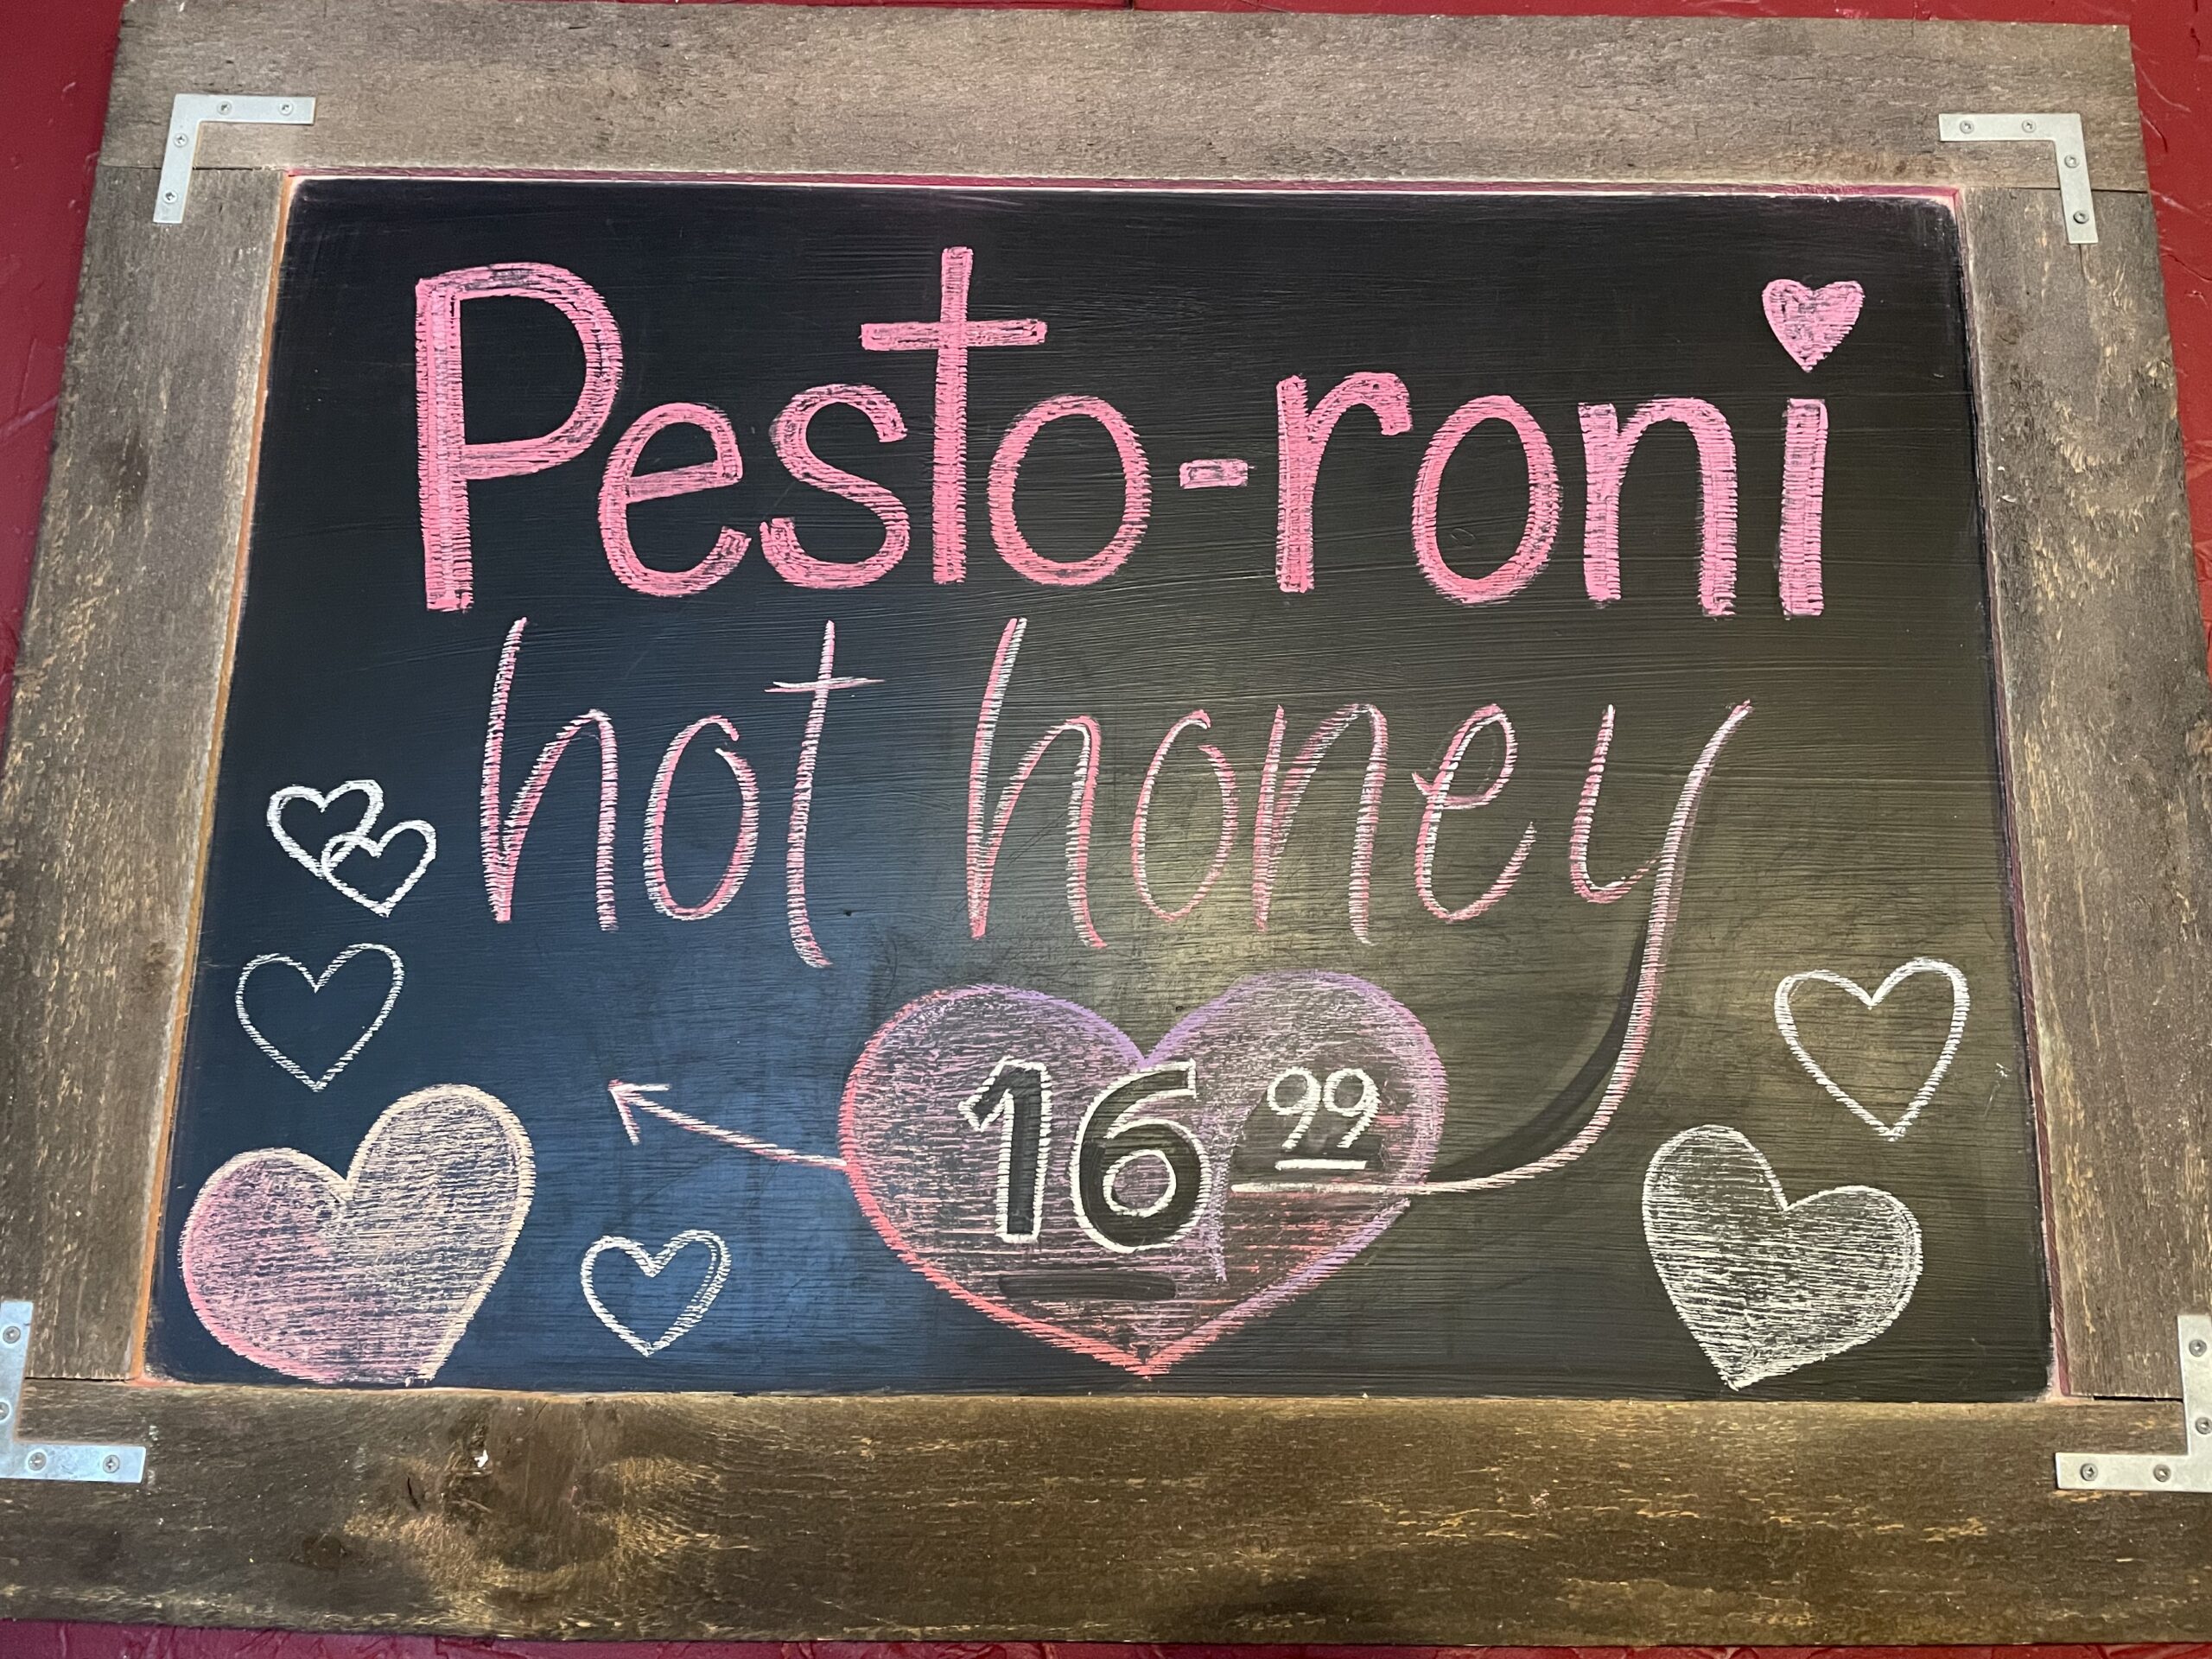 Pesto-roni
hot honey
16 99